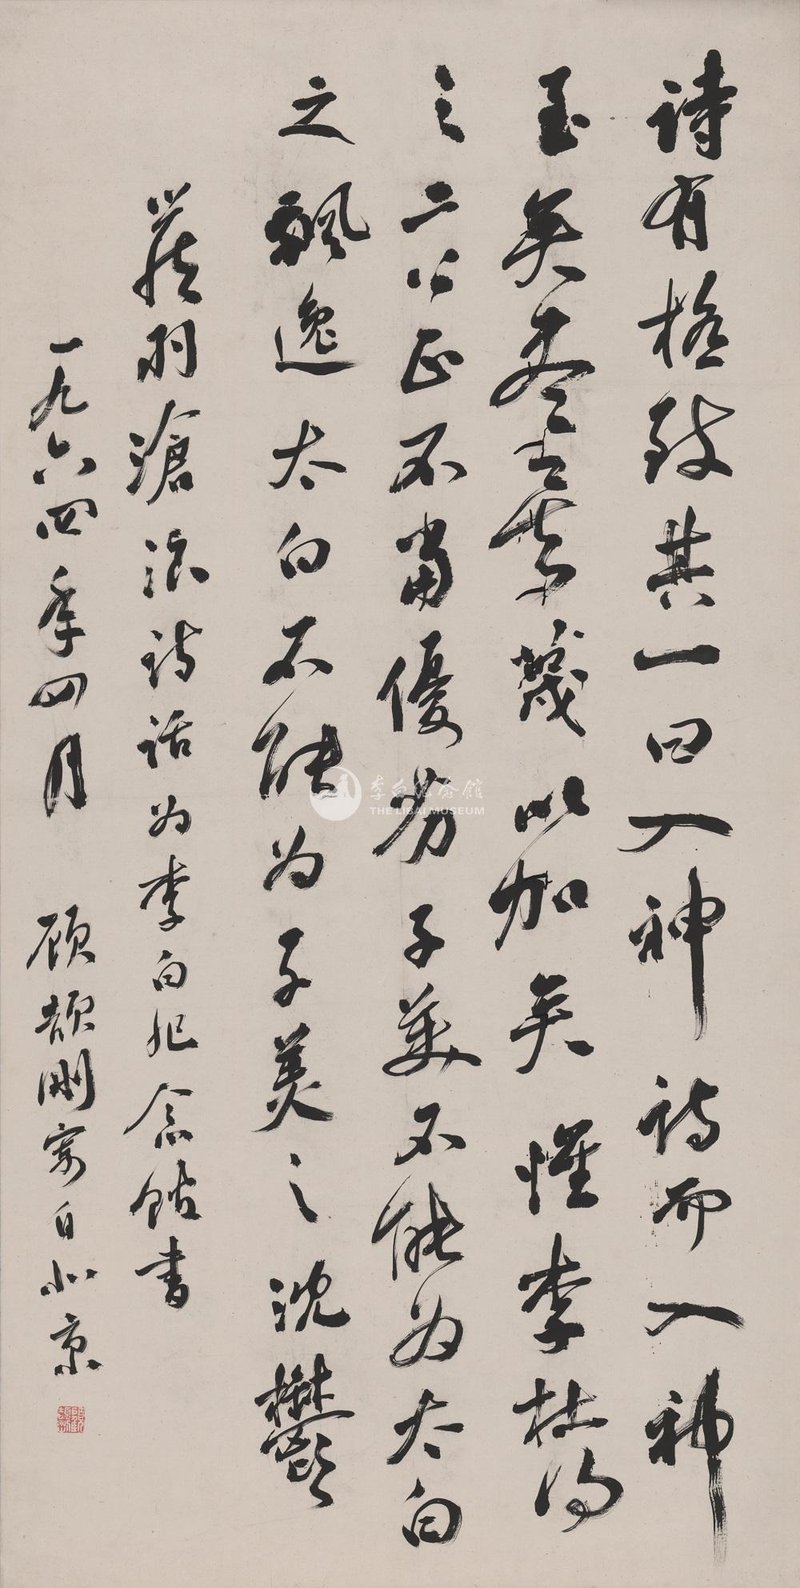 詩有極致其一曰入神詩而入神
至矣盡矣蔑以加矣惟李杜得
之二公正不當優劣子美不能为太白
之飘逸太白不能为子美之沈鬱
严羽滄浪诗话为李白纪念馆书
一九六四年四月 顾颉刚寄自北京
李白纪念馆
THE LIBAI MUSEUM